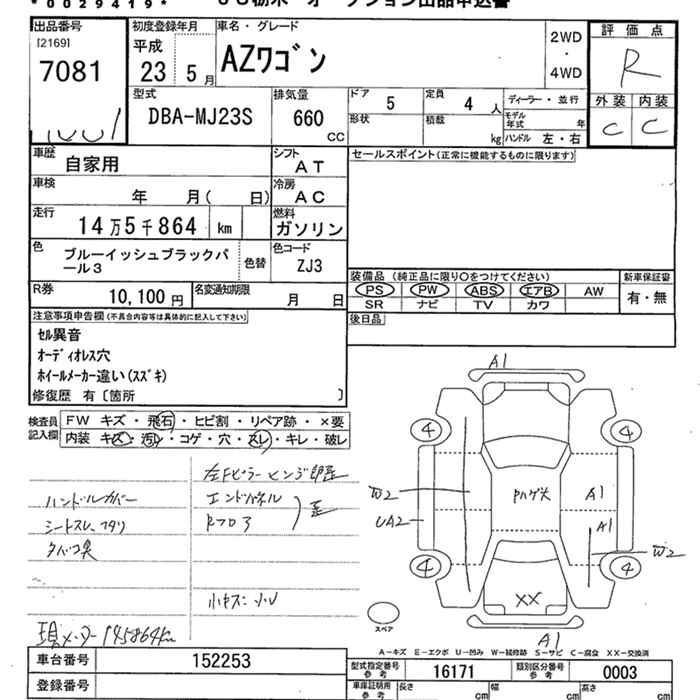 *0029419*
出品番号
[2169]
7081
初度登録年月
平成
23 5月
車名・グレード
AZワゴン
2WD
・
4WD
評価点
R
外装 内装
C C
型式
DBA-MJ23S
排気量
660
CC
ドア
5
定員
4 人
形状
積載
kg
ディーラー・並行
モデル年式 年
ハンドル 左・右
車歴
自家用
シフト
AT
セールスポイント(正常に機能するものに限ります)
車検
年 月( 日)
冷房
AC
走行
14万5千864 km
燃料
ガソリン
色
ブルーイッシュブラックパ
ール3
色替
色コード
ZJ3
装備品 (純正品に限り○をつけてください)
新車保証書
PS PW ABS エアB AW
有・無
SR ナビ TV カワ
R券
10,100円
名変通知期限
月 日
後日品
注意事項申告欄(不具合内容等は具体的に記入して下さい)
セル異音
オーディオレス穴
ホイールメーカー違い(スズキ)
修復歴 有〔箇所 〕
検査員
記入欄
FW キズ・飛石・ヒビ割・リペア跡・×要
内装 キズ・汚レ・コゲ・穴・スレ・キレ・破レ
ハンドルカバー
シートスレ、
タバコ臭
エンドパネル
Rフロア
現メーター145864km
A1
4
4
W2
UA2
A1
A1
W2
4
4
XX
スペア
A1
A-キズ E-エクボ U-凹み W-補修跡 S-サビ C-腐食 XX-交換済
車台番号
152253
登録番号
型式指定番号
参考
16171
類別区分番号
参考
0003
車庫証明用
参考
長さ
cm
幅
cm
高さ
cm